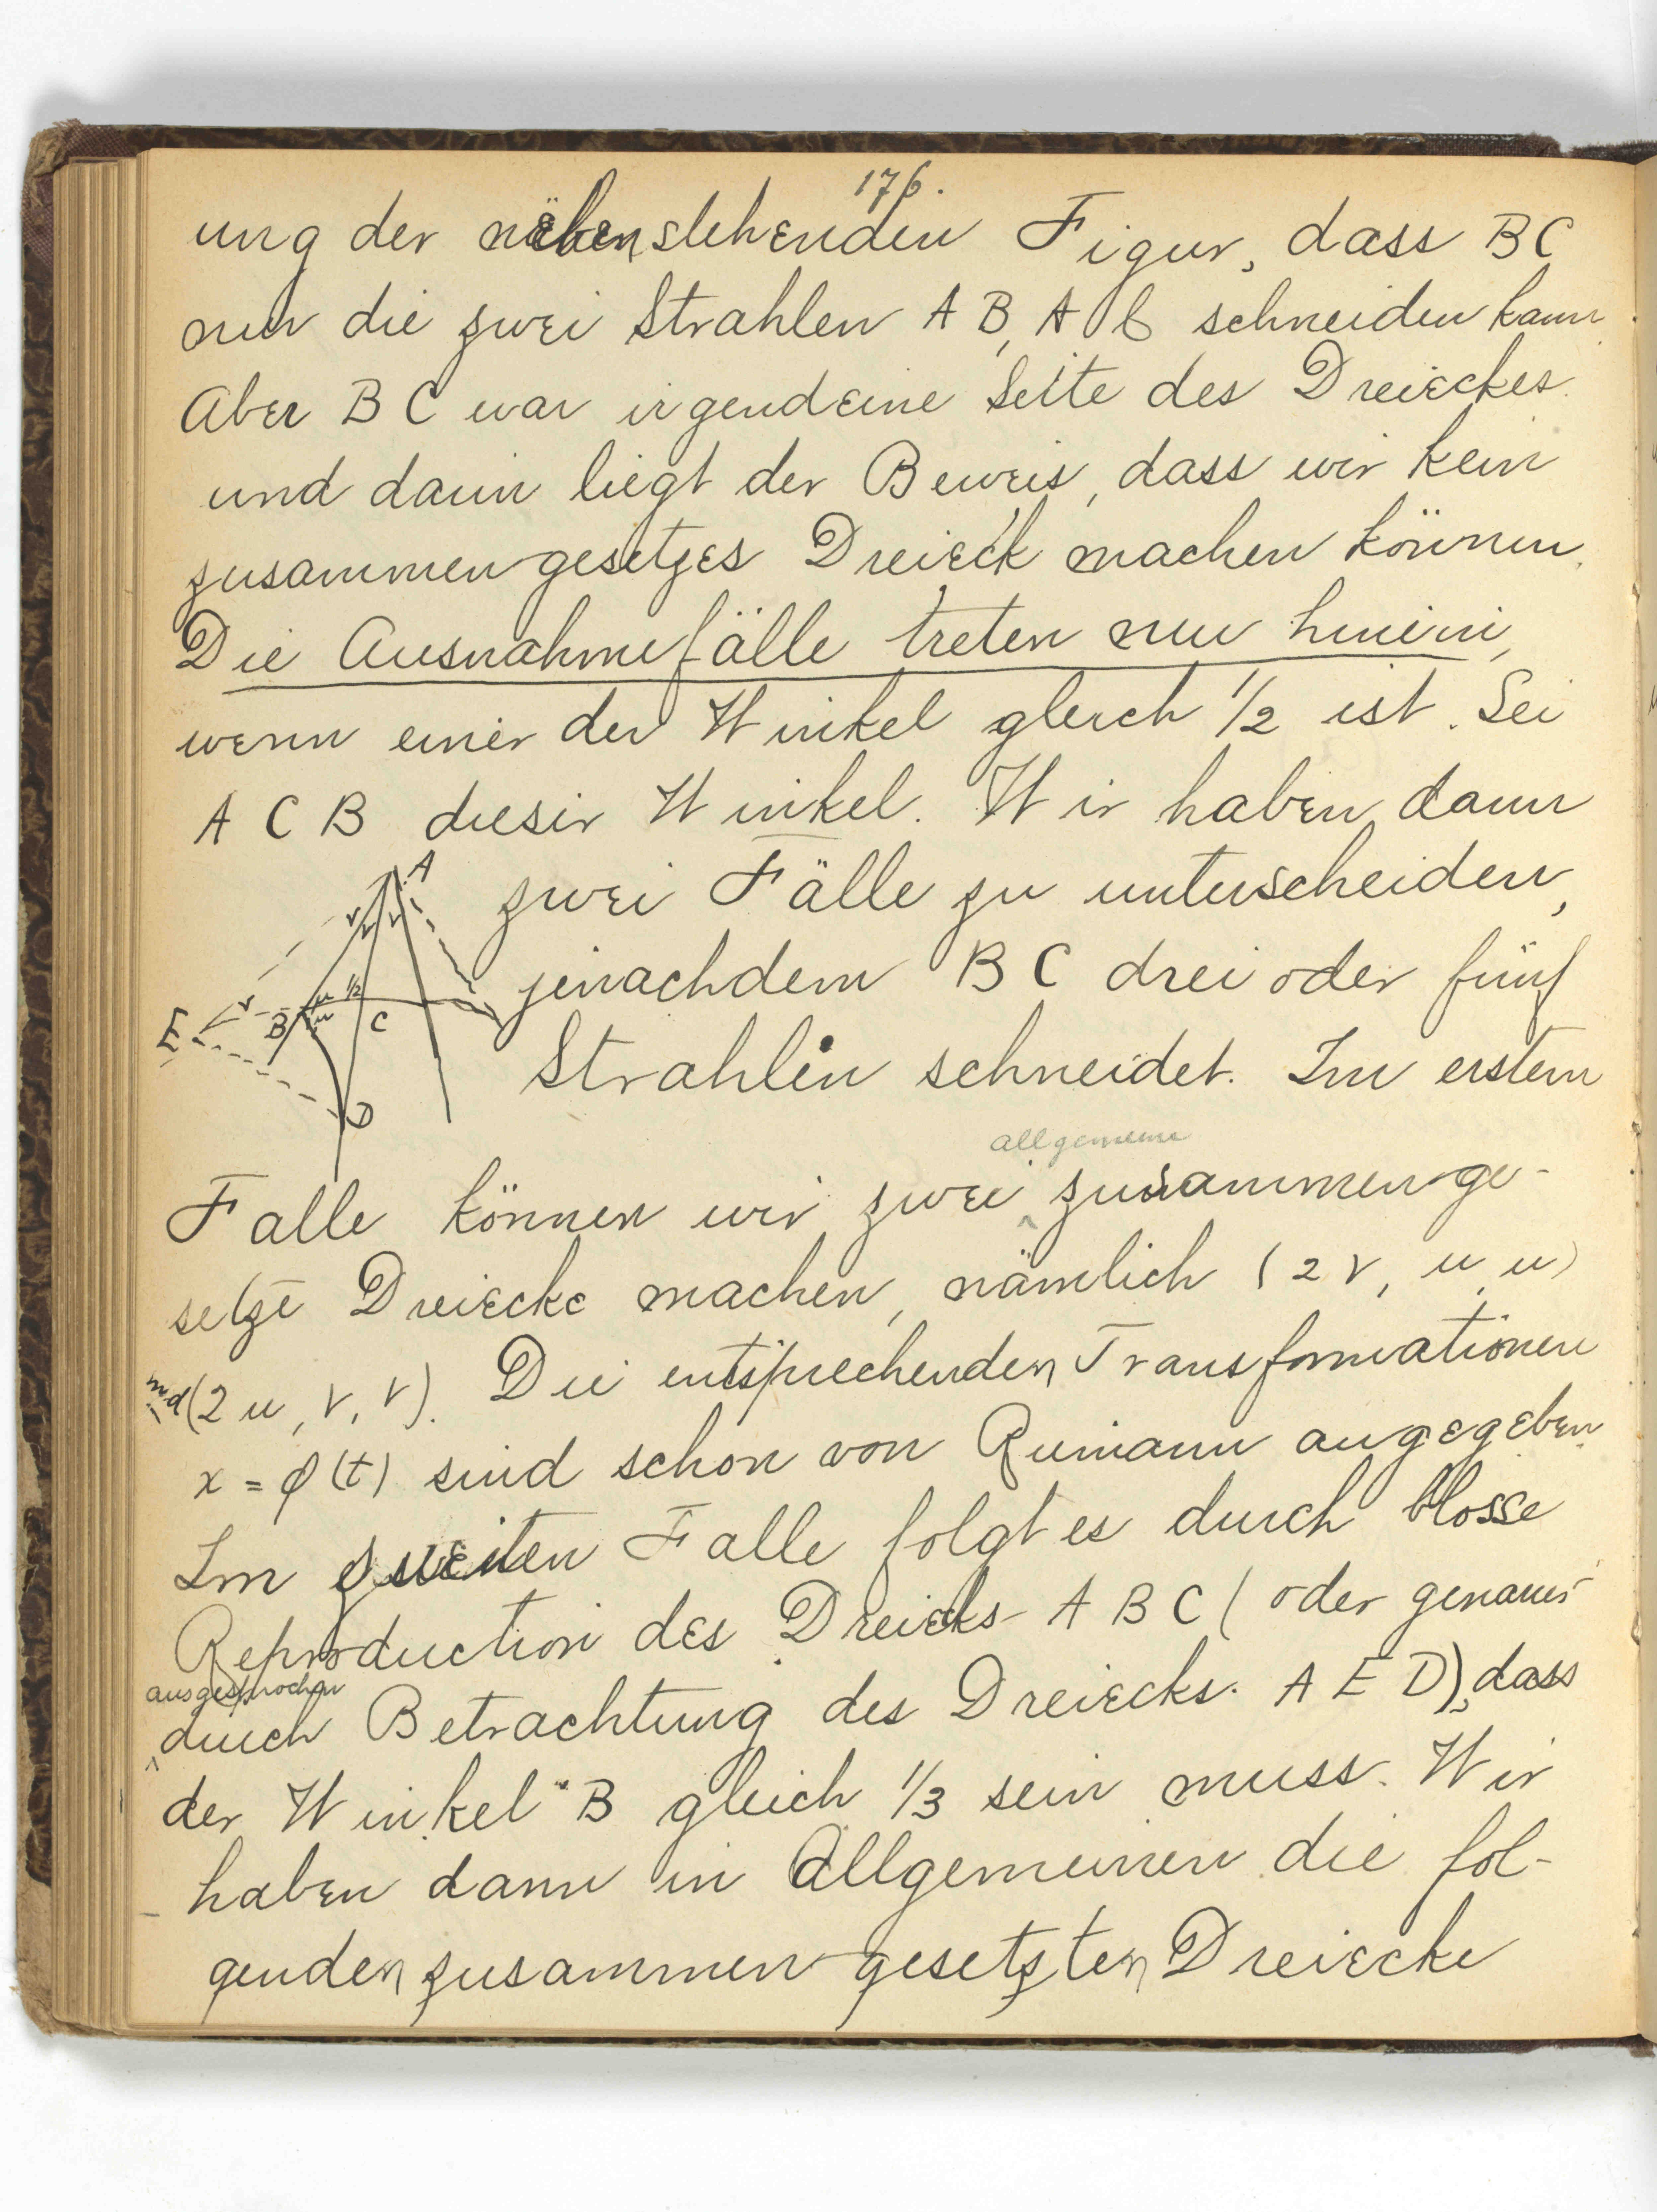 176.
ung der nebenstehenden Figur, dass BC
nur die zwei Strahlen AB, AC schneiden kann.
Aber BC war irgendeine Seite des Dreieckes
und darin liegt der Beweis, dass wir kein
zusammengesetzes Dreieck machen können.
Die Ausnahmefälle treten nun hinein,
wenn einer der Winkel gleich 1/2 ist. Sei
ACB dieser Winkel. Wir haben dann
zwei Fälle zu unterscheiden,
jenachdem BC drei oder fünf
Strahlen schneidet. Im erstem
A
v
v
v
v
u
1/2
u
E
B
C
D
allgemeine
Falle können wir zwei ^ zusammenge-
setze Dreiecke machen, nämlich (2v, u, u)
und (2u, v, v). Die entsprechenden Transformationen
x = φ(t) sind schon von Riemann angegeben.
Im zweiten Falle folgt es durch blosse
Reproduction des Dreiecks ABC (oder genauer
ausgesprochen
^ durch Betrachtung des Dreiecks AED), dass
der Winkel B gleich 1/3 sein muss. Wir
haben dann in Allgemeinen die fol-
genden zusammengesetzten Dreiecke